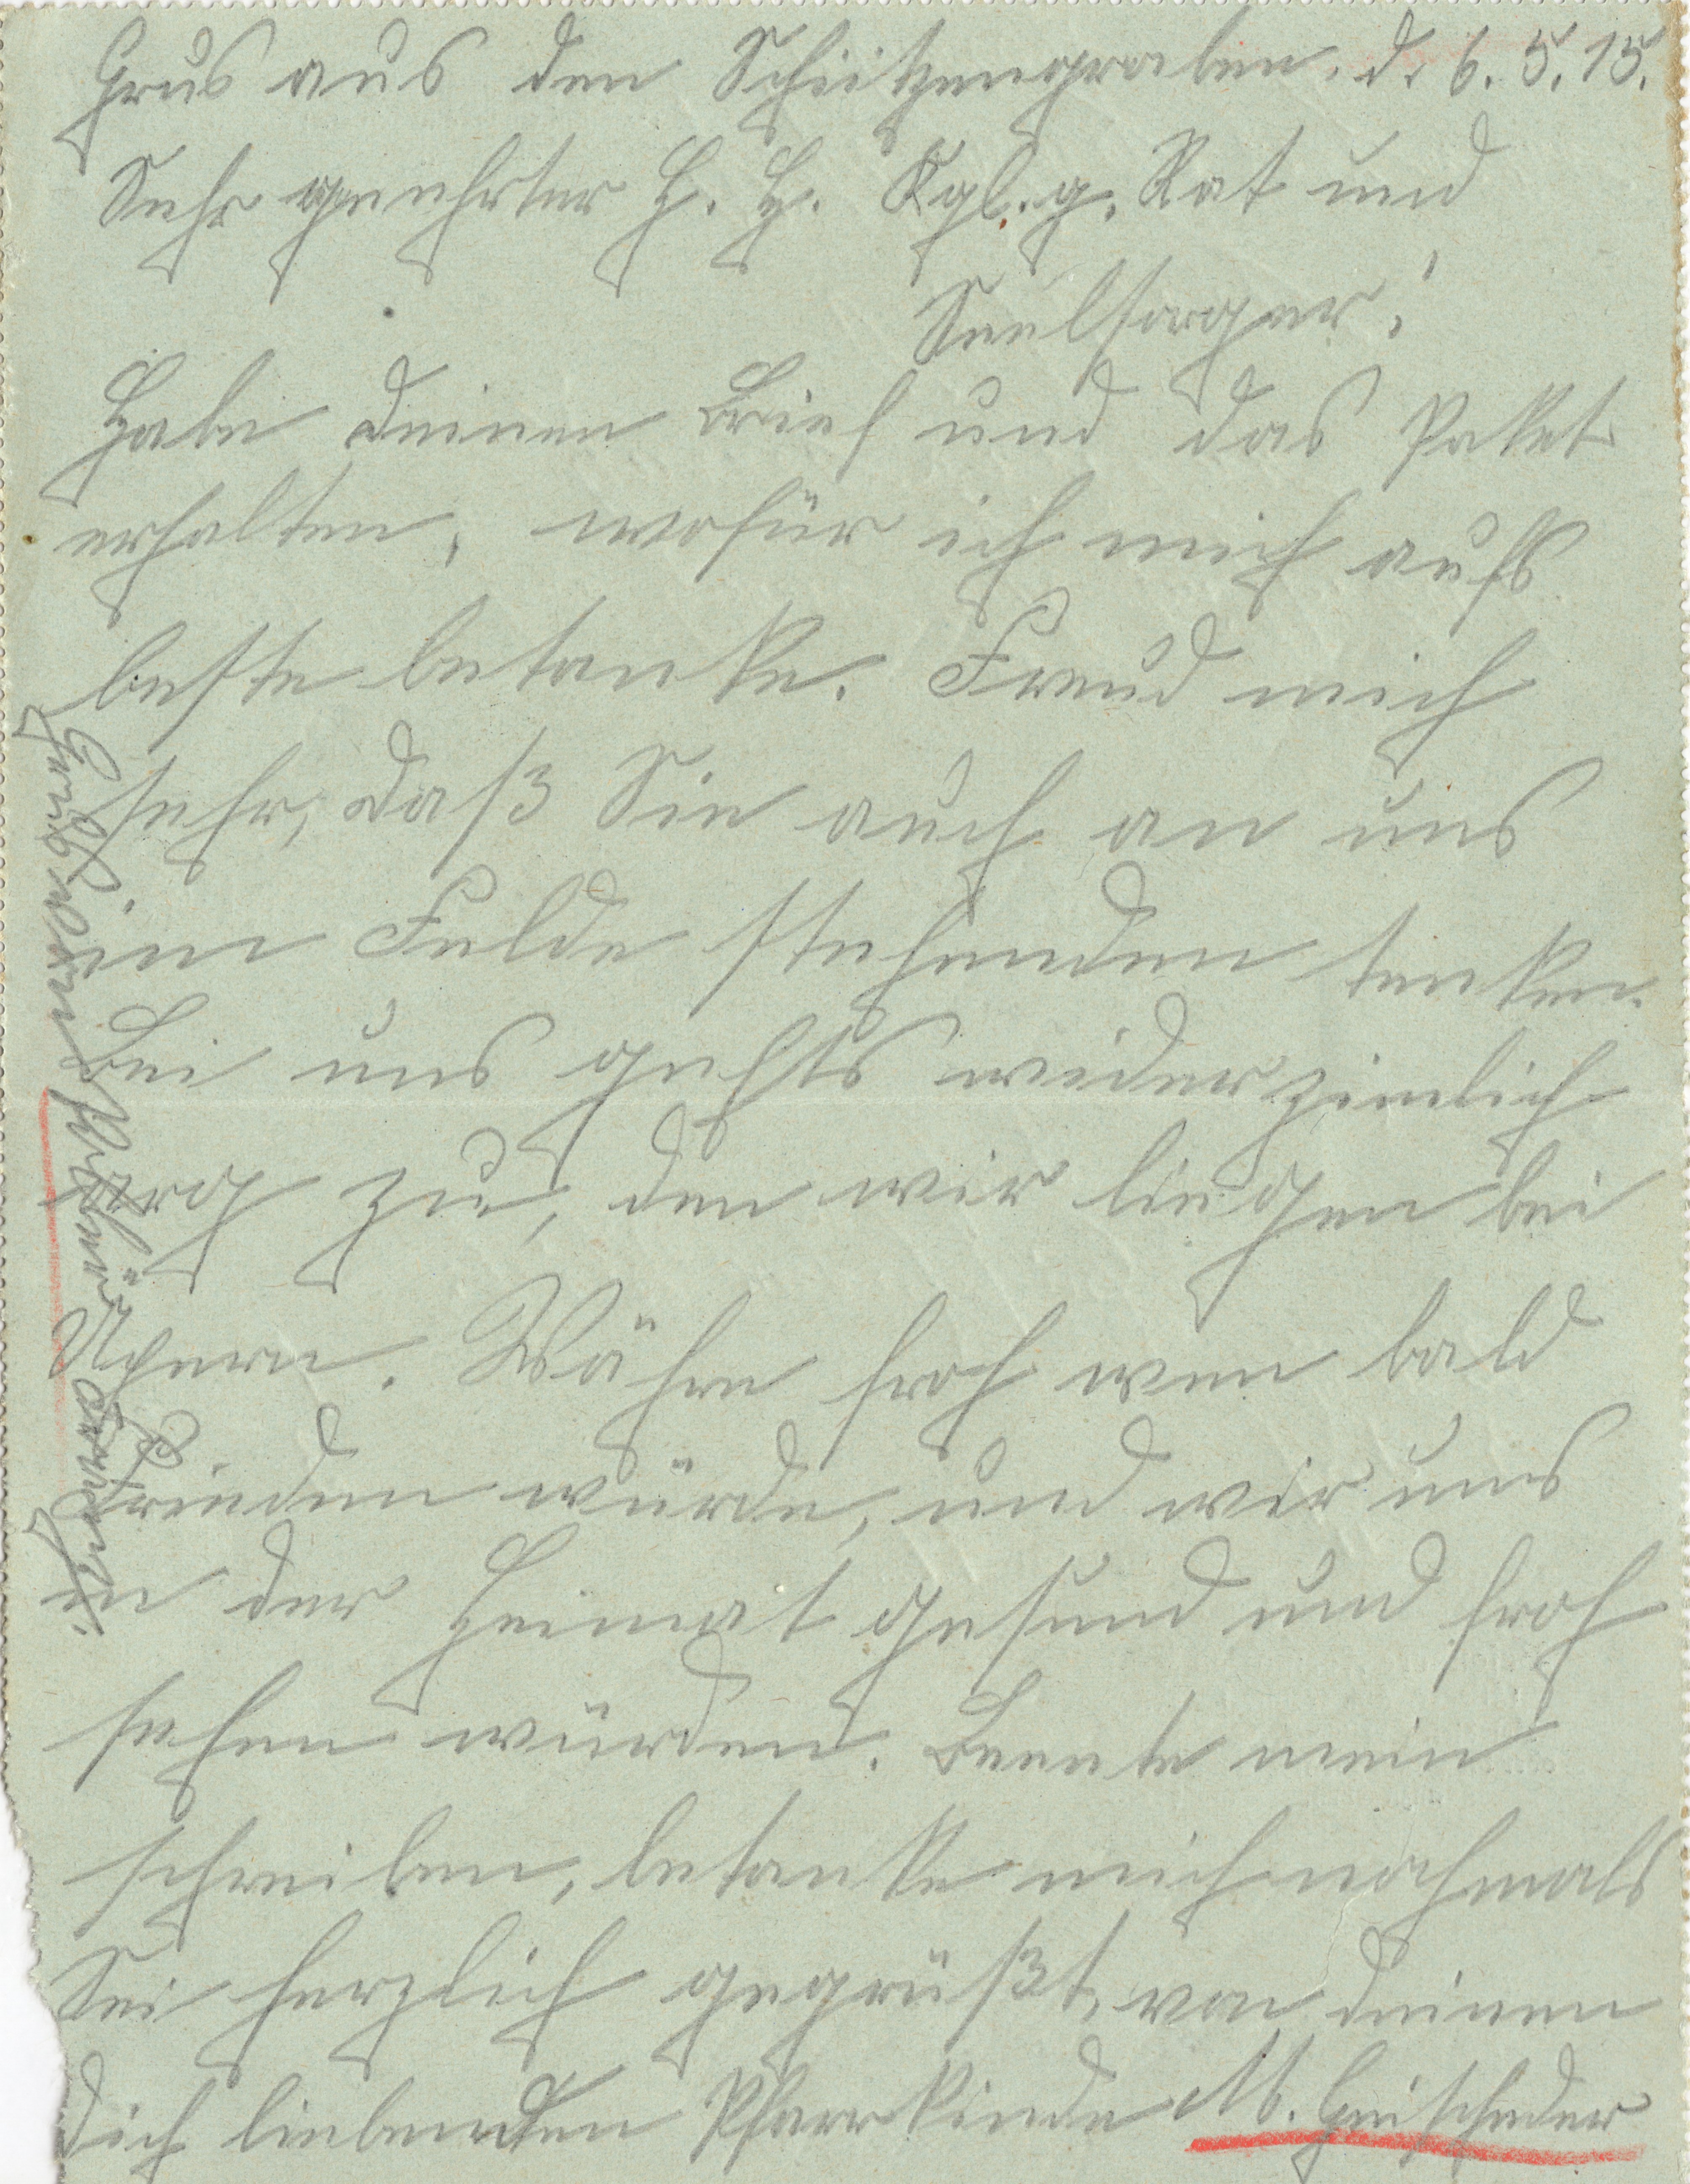 Grus aus den Schützengraben. d. 6. 5. 15.
Sehr geehrter H. H. Kgl. g. Rat und
Seelsorger!
Habe deinen Brief und das Paket
erhalten, wofür ich mich aufs
beste betanke. Freud mich
sehr, daß Sie auch an uns
im Felde stehenden tenken.
Bei uns gehts wider zimlich
arg zu, den wir liegen bei
Ypern. Währe froh wen bald
Frieden würde, und wir uns
in der Heimat gesund und froh
sehen würden. Beente mein
schreiben, betanke mich nochmals
Sei herzlich gegrüßt, von deinen
dich liebenden Pfarrkinde M. Geischeder